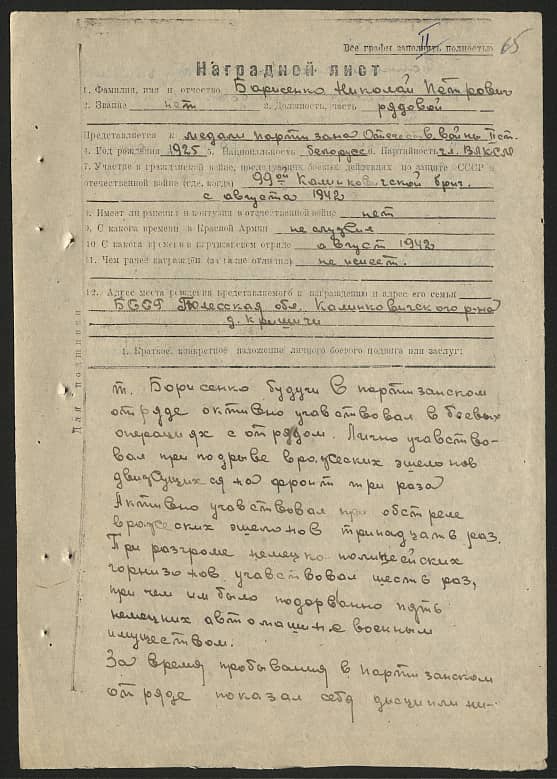 Все графы заполнить полностью
II
65
Наградной лист
1. Фамилия, имя и отчество Борисенко Николай Петрович
2. Звание нет 3. Должность, часть рядовой
Представляется к медали партизана Отечеств войны II ст.
4. Год рождения 1925 5. Национальность белорусс 6. Партийность чл. ВЛКСМ
7. Участие в гражданской войне, последующих боевых действиях по защите СССР и
отечественной войне (где, когда) 99ой Калинковичской бриг.
с августа 1942
8. Имеет ли ранения и контузии в отечественной войне нет
9. С какого времени в Красной Армии не служил
10. С какого времени в партизанском отряде август 1942
11. Чем ранее награжден (за какие отличия) не имеет.
12. Адрес места рождения представляемого к награждению и адрес его семьи
БССР Полесская обл. Калинковичского р-на
д. Крышичи
Для подшивки
1. Краткое, конкретное изложение личного боевого подвига или заслуг:
т. Борисенко будучи в партизанском
отряде активно учавствовал в боевых
операциях с отрядом. Лично учавство-
вал при подрыве вражеских эшелонов
движущихся на фронт три раза
Активно учавствовал при обстреле
вражеских эшелонов тринадцать раз.
При разгроме немецко-полицейских
горнизонов учавствовал шесть раз,
при чем им было подорванно пять
немецких автомашин с военным
имуществом.
За время пробывания в партизанском
отряде показал себя дисциплини-